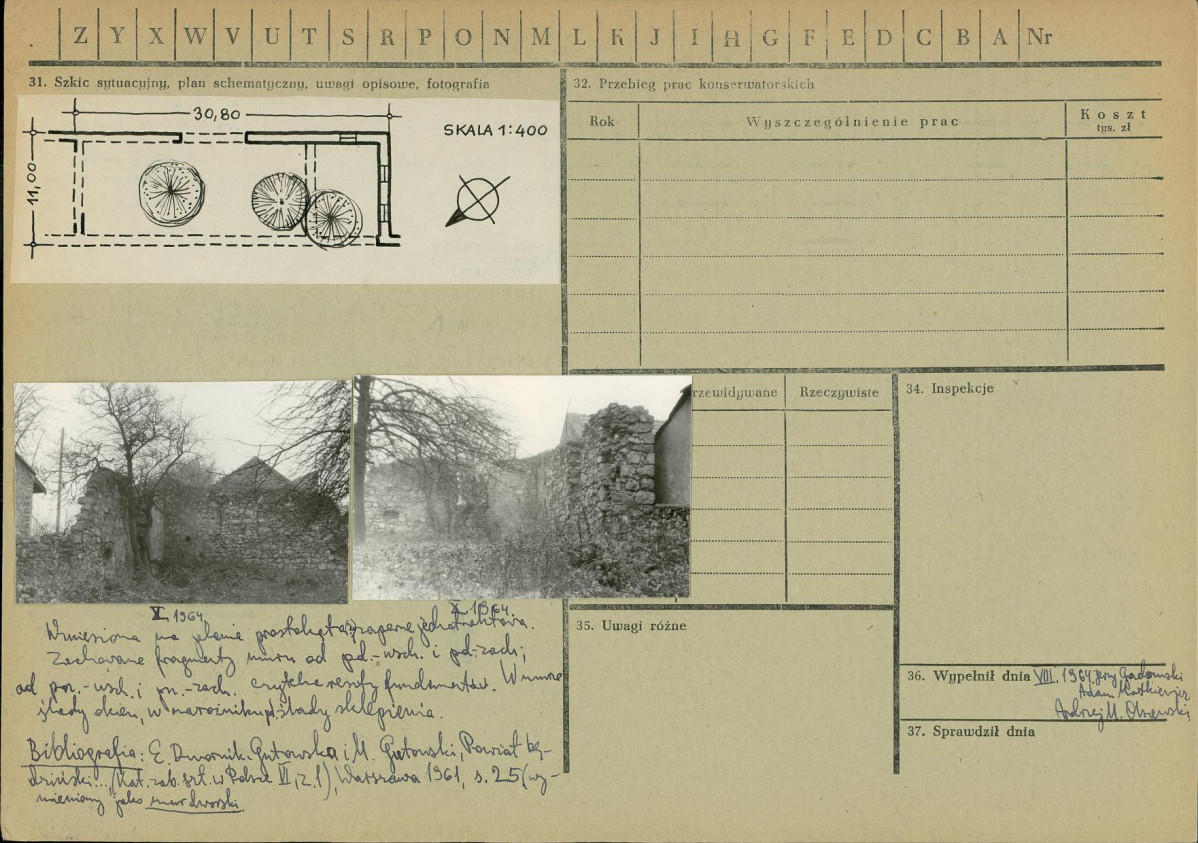 Z Y X W V U T S R P O N M L K J I H G F E D C B A Nr
31. Szkic sytuacyjny, plan schematyczny, uwagi opisowe, fotografia
30,80
11,00
SKALA 1:400
32. Przebieg prac konserwatorskich
Rok
Wyszczególnienie prac
Koszt
tys. zł
rzewidywane
Rzeczywiste
34. Inspekcje
X 1964
X 1964
Wzniesiona na planie prostokąta(?) zapewne jednotraktowa.
Zachowane fragmenty muru od pd.-wsch. i pd-zach;
od pn.-wsch. i pn.-zach. czytelne reszty fundamentów. W murze
ślady okien, w narożniku pd. ślady sklepienia.
Bibliografia: E. Dwornik-Gutowska i M. Gutowski, Powiat bę-
dziński..., (Kat. zab. szt. w Polsce VI, z. 1), Warszawa 1961, s. 25 (wy-
mieniony jako mur dworski.
35. Uwagi różne
36. Wypełnił dnia VIII. 1964. Jerzy Gadomski
Adam Małkiewicz
Andrzej M. Olszewski
37. Sprawdził dnia